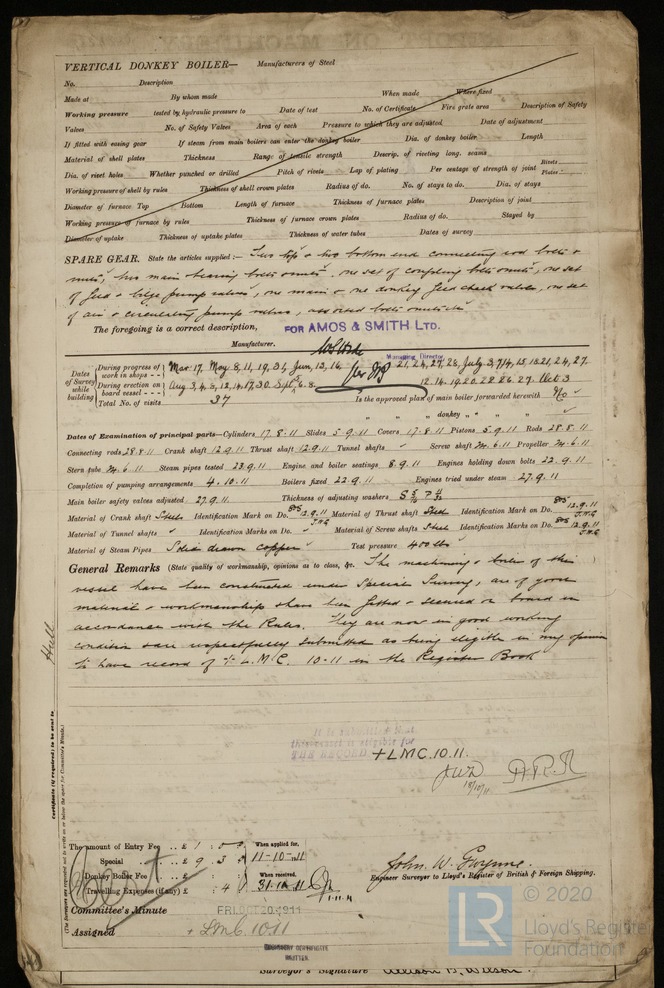 VERTICAL DONKEY BOILER— Manufacturers of Steel
No. Description
Made at By whom made When made Where fixed
Working pressure tested by hydraulic pressure to Date of test No. of Certificate Fire grate area Description of Safety
Valves No. of Safety Valves Area of each Pressure to which they are adjusted Date of adjustment
If fitted with easing gear If steam from main boilers can enter the donkey boiler Dia. of donkey boiler Length
Material of shell plates Thickness Range of tensile strength Descrip. of riveting long. seams
Dia. of rivet holes Whether punched or drilled Pitch of rivets Lap of plating Per centage of strength of joint Rivets Plates
Working pressure of shell by rules Thickness of shell crown plates Radius of do. No. of stays to do. Dia. of stays
Diameter of furnace Top Bottom Length of furnace Thickness of furnace plates Description of joint
Working pressure of furnace by rules Thickness of furnace crown plates Radius of do. Stayed by
Diameter of uptake Thickness of uptake plates Thickness of water tubes Dates of survey
SPARE GEAR. State the articles supplied:— Two top & two bottom end connecting rod bolts &
nuts, two main bearing bolts & nuts, one set of coupling bolts & nuts, one set
of feed & bilge pump valves, one main & one donkey feed check valve, one set
of air & circulating pump valves, assorted bolts & nuts etc
The foregoing is a correct description,
FOR AMOS & SMITH LTD.
Manufacturer.
Managing Director
Dates of Survey while building
During progress of work in shops - - Mar 17, May 8, 11, 19, 31, Jun, 13, 16, 21, 24, 27, 28, July 3, 7, 14, 15, 18, 21, 24, 27.
During erection on board vessel - - - Aug 3, 4, 8, 12, 14, 17, 30. Sept 5. 6. 8. 12. 14. 19. 20. 22. 26. 27. Oct 3
Total No. of visits 37 Is the approved plan of main boiler forwarded herewith No
" " " donkey " " "
Dates of Examination of principal parts—Cylinders 17.8.11 Slides 5.9.11 Covers 17.8.11 Pistons 5.9.11 Rods 28.8.11
Connecting rods 28.8.11 Crank shaft 12.9.11 Thrust shaft 12.9.11 Tunnel shafts ✓ Screw shaft 24.6.11 Propeller 24.6.11
Stern tube 24.6.11 Steam pipes tested 23.9.11 Engine and boiler seatings 8.9.11 Engines holding down bolts 22.9.11
Completion of pumping arrangements 4.10.11 Boilers fixed 22.9.11 Engines tried under steam 27.9.11
Main boiler safety valves adjusted 27.9.11 Thickness of adjusting washers
Material of Crank shaft Steel Identification Mark on Do. 12.9.11 J.W.G Material of Thrust shaft Steel Identification Mark on Do. 12.9.11 J.W.G
Material of Tunnel shafts ✓ Identification Marks on Do. ✓ Material of Screw shafts Steel Identification Marks on Do. 12.9.11 J.W.G
Material of Steam Pipes Solid drawn copper Test pressure 400 lbs
General Remarks (State quality of workmanship, opinions as to class, &c. The machinery & boiler of this
vessel have been constructed under Special Survey, are of good
material & workmanship & have been fitted & secured on board in
accordance with the Rules. They are now in good working
condition & are respectfully submitted as being eligible in my opinion
to have record of + L.M.C. 10-11 in the Register Book
Hull
Certificate (if required) to be sent to
(The Surveyors are requested not to write on or below the space for Committee's Minute.)
It is submitted that
this vessel is eligible for
THE RECORD. + LMC. 10.11.
JWD A.R.R
The amount of Entry Fee .. £ 1 : 0 When applied for,
Special .. £ 9 . 3 11-10-11
Donkey Boiler Fee .. £ : : When received,
Travelling Expenses (if any) £ : 4 : 31.10.11
1.11.11
John W. Gwynne.
Engineer Surveyor to Lloyd's Register of British & Foreign Shipping.
Committee's Minute FRI. OCT 20 1911
Assigned + LMC. 10.11
MACHINERY CERTIFICATE
WRITTEN
© 2020
LR Lloyd's Register
Foundation
Surveyor's Signature Allison B. Wilson.